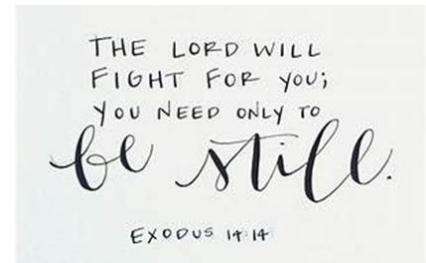 THE LORD WILL
FIGHT FOR YOU;
YOU NEED ONLY TO
be still.
EXODUS 14:14